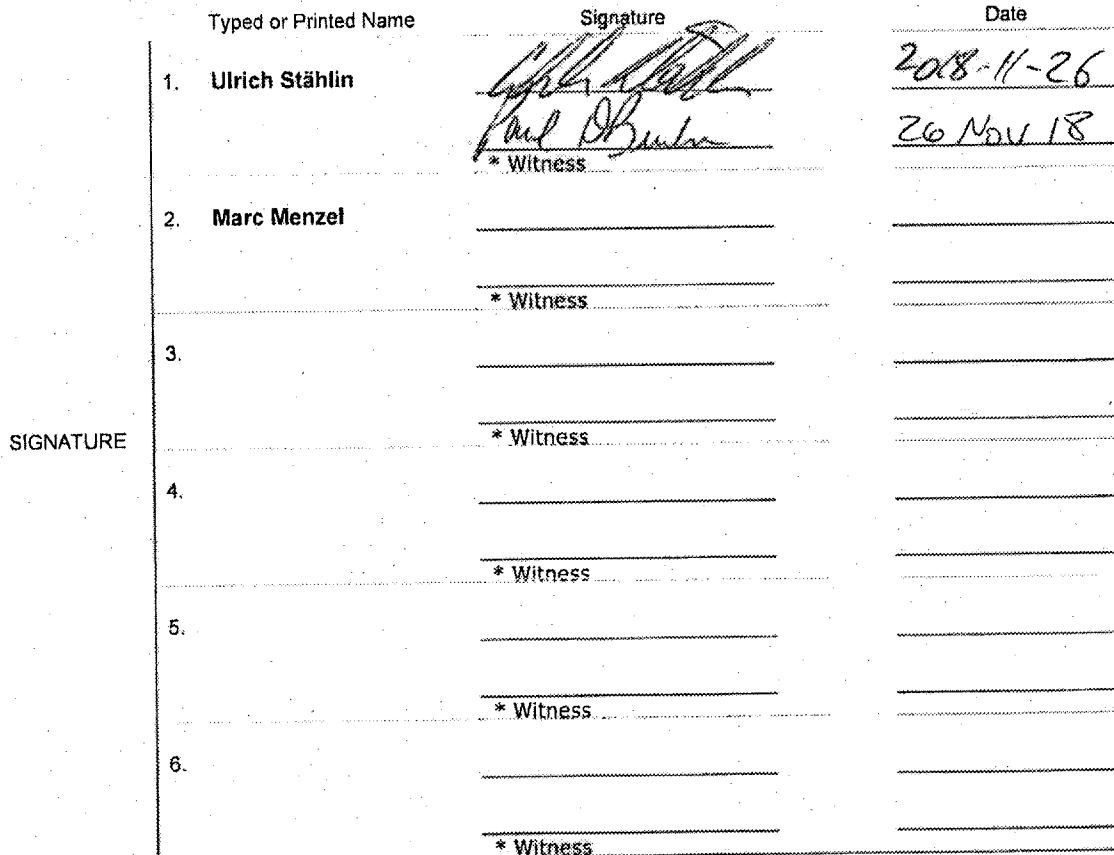 Typed or Printed Name Signature Date
1. Ulrich Stählin 2018-11-26
Paul 26 Nov 18
* Witness
2. Marc Menzel
* Witness
3.
* Witness
SIGNATURE
4.
* Witness
5.
* Witness
6.
* Witness